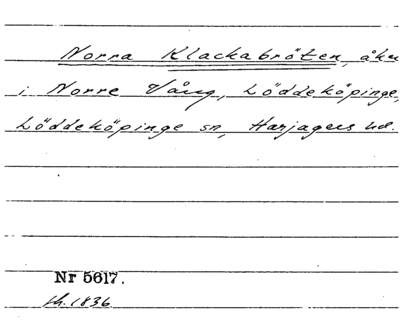 Norra Klackabröten, åker
i Norre Vång, Löddeköpinge,
Löddeköpinge sn, Harjagers hd.
Nr 5617.
1836